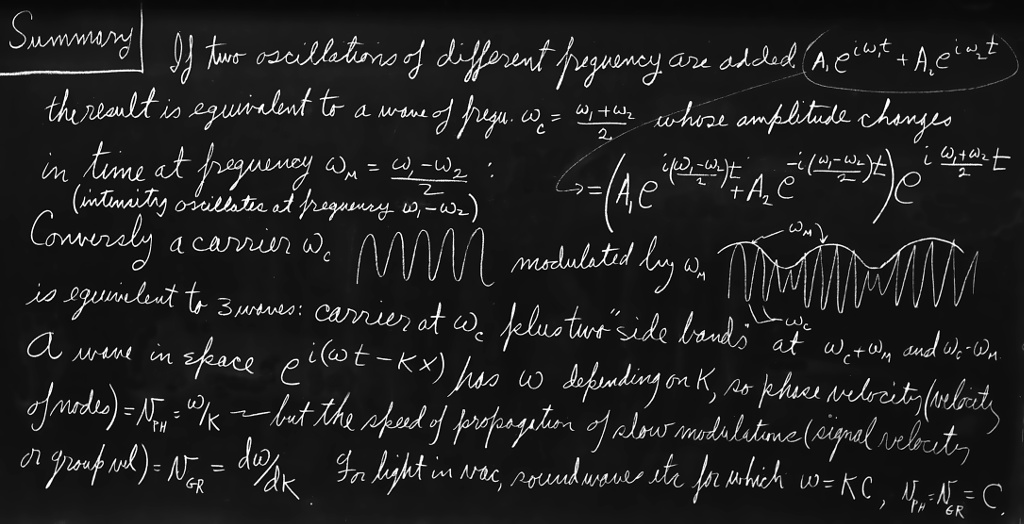 Summary If two oscillations of different frequency are added A₁e^{iω₁t} + A₂e^{iω₂t}
the result is equivalent to a wave of frequ. ω_c = (ω₁+ω₂)/2 whose amplitude changes
in time at frequency ω_M = (ω₁-ω₂)/2 : = (A₁e^{i((ω₁-ω₂)/2)t} + A₂e^{-i((ω₁-ω₂)/2)t}) e^{i (ω₁+ω₂)/2 t}
(intensity oscillates at frequency ω₁-ω₂)
Conversly a carrier ω_c modulated by ω_M ω_M ω_c
is equivalent to 3 waves: carrier at ω_c plus two "side bands" at ω_c+ω_M and ω_c-ω_M.
A wave in space e^{i(ωt-Kx)} has ω depending on K, so phase velocity (velocity
of nodes) = V_PH = ω/K — but the speed of propagation of slow modulations (signal velocity
or group vel) = V_GR = dω/dK. For light in vac, sound waves etc for which ω=KC, V_PH=V_GR=C.